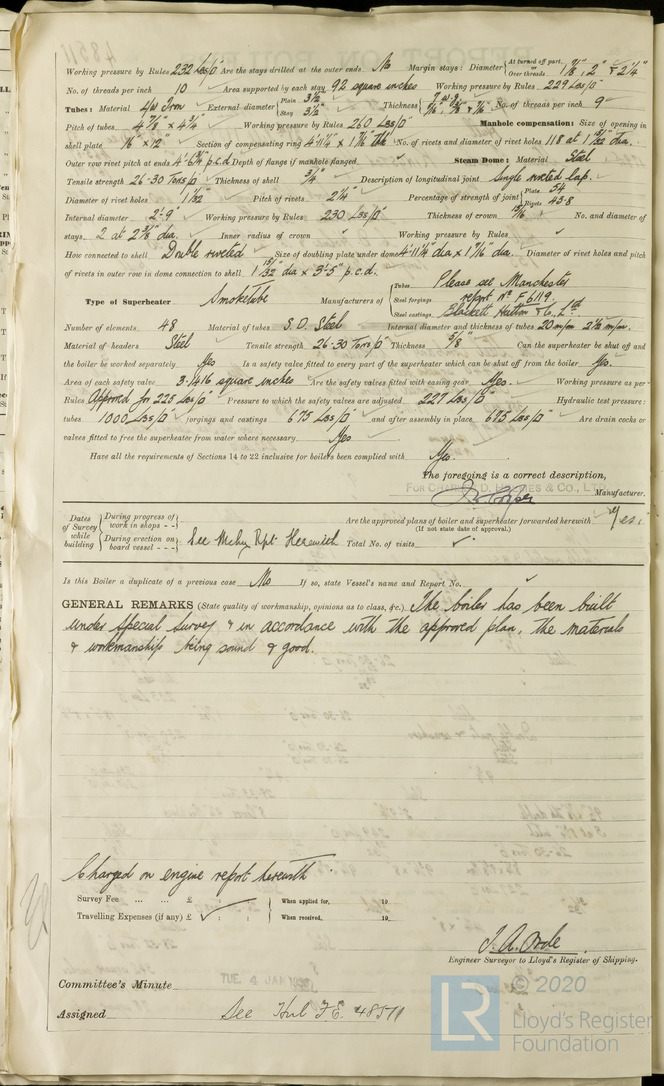 Working pressure by Rules 232 Lbs/□" Are the stays drilled at the outer ends No Margin stays: Diameter { At turned off part, 1 7/8", 2" & 2 1/4"
Over threads
No. of threads per inch 10 Area supported by each stay 92 square inches Working pressure by Rules 229 Lbs/□"
Tubes: Material Iron External diameter { Plain 3 1/2" Stay 3 1/2" Thickness No. of threads per inch 9
Pitch of tubes 4 7/8" x 4 3/4" Working pressure by Rules 260 Lbs/□" Manhole compensation: Size of opening in
shell plate 16" x 12" Section of compensating ring No. of rivets and diameter of rivet holes dia.
Outer row rivet pitch at ends p.c.d. Depth of flange if manhole flanged Steam Dome: Material Steel
Tensile strength 26-30 Tons/□" Thickness of shell 3/4" Description of longitudinal joint Single riveted lap.
Diameter of rivet holes 1 1/32" Pitch of rivets 2 1/4" Percentage of strength of joint { Plate 54 Rivets 43·8
Internal diameter 2'-9" Working pressure by Rules 230 Lbs/□" Thickness of crown No. and diameter of
stays 2 at 2 7/8" dia. Inner radius of crown Working pressure by Rules
How connected to shell Double riveted Size of doubling plate under dome 4'-11 1/4" dia x 1 7/16" dia. Diameter of rivet holes and pitch
of rivets in outer row in dome connection to shell dia x 3'-5" p.c.d.
Type of Superheater Smoketube Manufacturers of { Tubes Please see Manchester
Steel forgings report No F 6119.
Steel castings Blackett Hutton & Co. Ltd.
Number of elements 48 Material of tubes S.D. Steel Internal diameter and thickness of tubes 20 m/m. 2 1/2 m/m.
Material of headers Steel Tensile strength 26-30 Tons/□" Thickness 5/8" Can the superheater be shut off and
the boiler be worked separately Yes Is a safety valve fitted to every part of the superheater which can be shut off from the boiler Yes.
Area of each safety valve 3·1416 square inches Are the safety valves fitted with easing gear Yes. Working pressure as per
Rules Approved for 225 Lbs/□" Pressure to which the safety valves are adjusted 227 Lbs/□" Hydraulic test pressure:
tubes 1000 Lbs/□" forgings and castings 675 Lbs/□" and after assembly in place 675 Lbs/□" Are drain cocks or
valves fitted to free the superheater from water where necessary Yes
Have all the requirements of Sections 14 to 22 inclusive for boilers been complied with Yes.
The foregoing is a correct description,
FOR CHARLES D. HOLMES & CO., LTD.
Manufacturer.
Dates of Survey while building { During progress of work in shops - - During erection on board vessel - - - } See Mchy Rpt. Herewith
Are the approved plans of boiler and superheater forwarded herewith Yes.
(If not state date of approval.)
Total No. of visits
Is this Boiler a duplicate of a previous case No If so, state Vessel's name and Report No.
GENERAL REMARKS (State quality of workmanship, opinions as to class, &c.) The boiler has been built
under special survey & in accordance with the approved plan, the materials
& workmanship being sound & good.
Charged on engine report herewith
Survey Fee ... ... £ : : When applied for, 19
Travelling Expenses (if any) £ : : When received, 19
Engineer Surveyor to Lloyd's Register of Shipping.
Committee's Minute TUE. 4 JAN
Assigned See Hul F.E. 48571
© 2020
LR
Lloyd's Register
Foundation